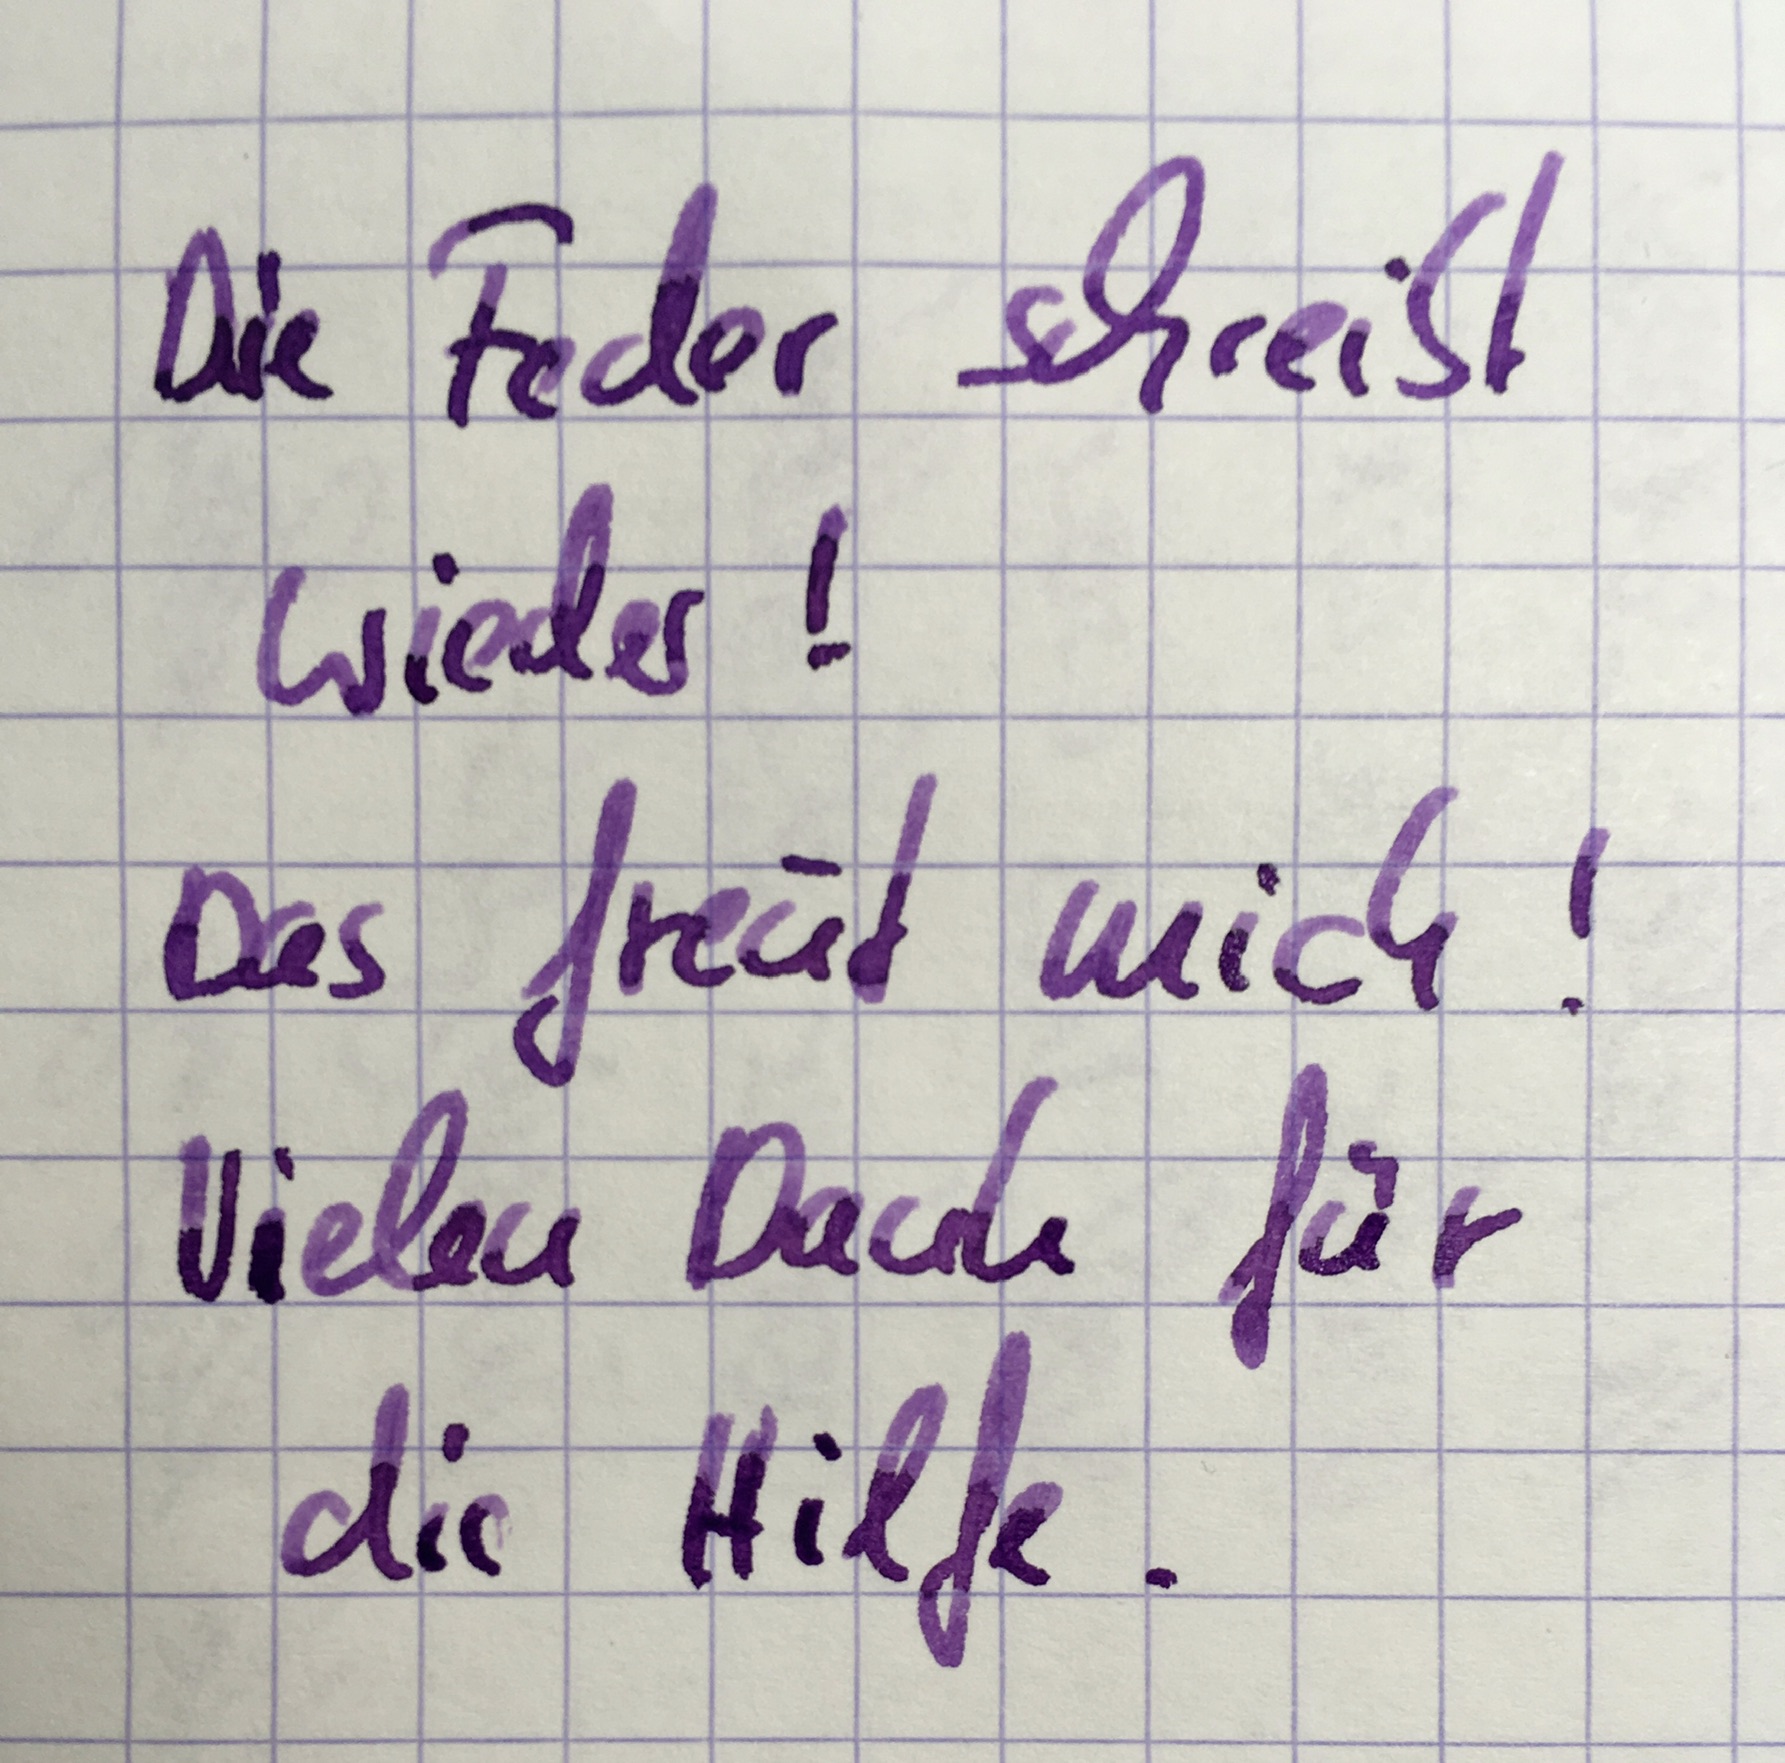 Die Feder schreibt
wieder!
Das freut mich!
Vielen Dank für
die Hilfe.